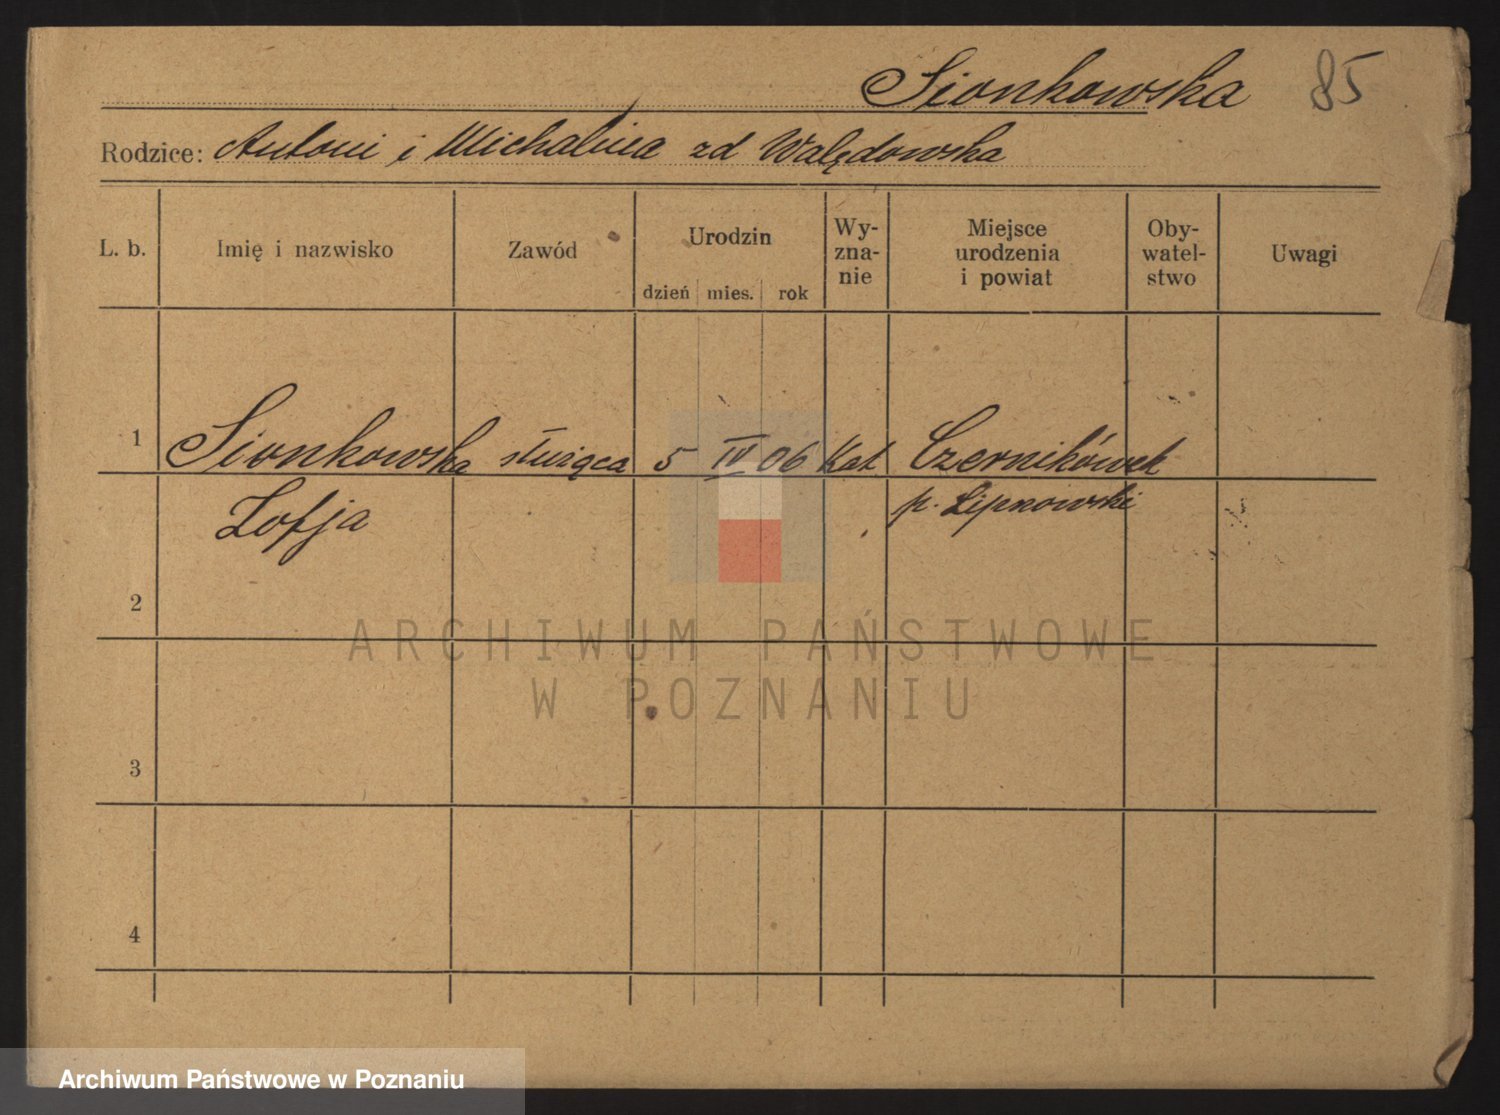 Sionkowska 85
Rodzice: Antoni i Michalina zd Walędowska
L. b. Imię i nazwisko Zawód Urodzin dzień mies. rok Wy-zna-nie Miejsce urodzenia i powiat Oby-watel-stwo Uwagi
1 Sionkowska służąca 5 IV 06 Kat Czernikówek
Zofja p. Lipnowski
2
3
4
ARCHIWUM PAŃSTWOWE
W POZNANIU
Archiwum Państwowe w Poznaniu